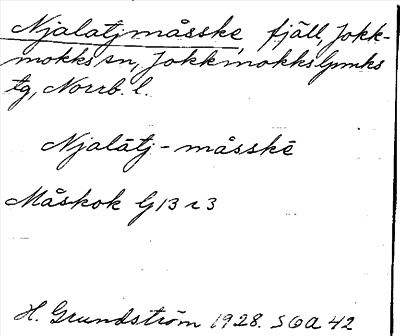 Njalatjmåsske, fjäll, Jokk-
mokks sn, Jokkmokks lpmks
tg, Norrb. l.
Njalātj-måsskē
Måskok G 13 r 3
H. Grundström 1928. SOA 42